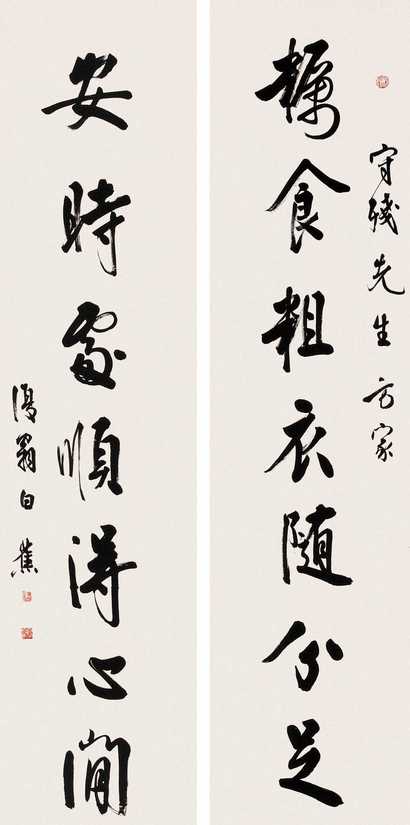 守殘先生方家
糲食粗衣隨分足
安時處順得心閒
復翁白蕉